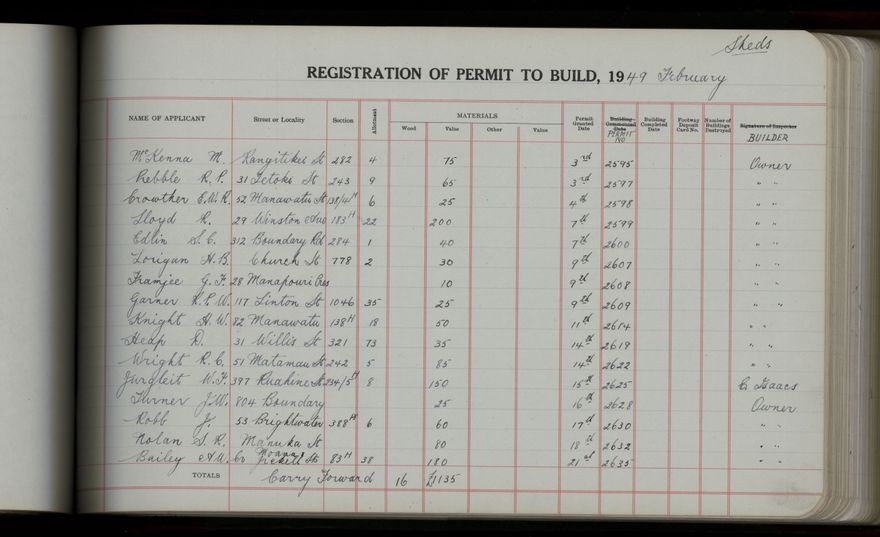 Sheds
REGISTRATION OF PERMIT TO BUILD, 1949 February
NAME OF APPLICANT Street or Locality Section Allotment MATERIALS Wood Value Other Value Permit Granted Date Building Commenced Date PERMIT NO Building Completed Date Footway Deposit Card No. Number of Buildings Destroyed Signature of Inspector BUILDER
McKenna M. Rangitikei St 282 4 75 3rd 2595 Owner
Pebble R. P. 31 Tetoki St 243 9 65 3rd 2597 " "
Crowther E.W.R. 52 Manawatu St 138/4H 6 25 4th 2598 " "
Lloyd R. 29 Winston Ave 183H 22 200 7th 2599 " "
Edlin S. C. 312 Boundary Rd 284 1 40 7th 2600 " "
Lorigan H.B. Church St 778 2 30 9th 2607 " "
Framjee G. F. 28 Manapouri Cres 10 9th 2608 " "
Garner R.P.W. 117 Linton St 1046 35 25 9th 2609 " "
Knight H.W. 82 Manawatu 138H 18 50 11th 2614 " "
Heap D. 31 Willis St 321 73 35 14th 2619 " "
Wright R. C. 51 Matamau St 242 5 85 14th 2622 " "
Jurgleit W.F. 397 Ruahine St 234/5H 8 150 15th 2625 C. Isaacs
Turner J.W. 804 Boundary 25 16th 2628 Owner
Robb J. 53 Brightwater 388H 6 60 17th 2630 " "
Nolan S. R. Manuka St 80 18th 2632 " "
Bailey A.W. Co Moana & Pickett Sts 83H 38 180 21st 2635 " "
TOTALS Carry Forward 16 £1135